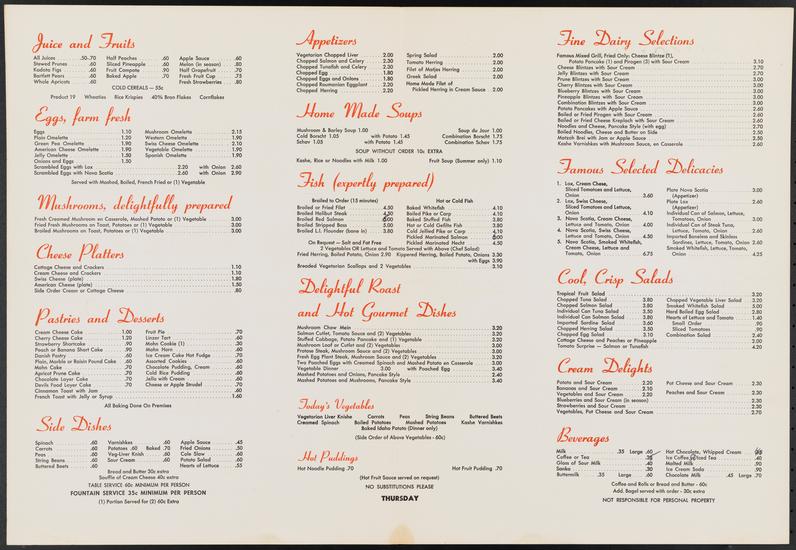 Juice and Fruits
All Juices .50-.70
Stewed Prunes .60
Kadota Figs .60
Bartlett Pears .60
Whole Apricots .60
Half Peaches .60
Sliced Pineapple .60
Fruit Compote .90
Baked Apple .70
Apple Sauce .60
Melon (in season) .80
Half Grapefruit .70
Fresh Fruit Cup .75
Fresh Strawberries .80
COLD CEREALS — 55c
Product 19 Wheaties Rice Krispies 40% Bran Flakes Cornflakes
Eggs, farm fresh
Eggs 1.10
Plain Omelette 1.20
Green Pea Omelette 1.90
American Cheese Omelette 1.90
Jelly Omelette 1.50
Onions and Eggs 1.50
Mushroom Omelette 2.15
Western Omelette 1.90
Swiss Cheese Omelette 2.10
Vegetable Omelette 1.90
Spanish Omelette 1.90
Scrambled Eggs with Lox 2.20 with Onion 2.60
Scrambled Eggs with Nova Scotia 2.60 with Onion 2.90
Served with Mashed, Boiled, French Fried or (1) Vegetable
Mushrooms, delightfully prepared
Fresh Creamed Mushroom en Casserole, Mashed Potato or (1) Vegetable 3.00
Fried Fresh Mushrooms on Toast, Potatoes or (1) Vegetable 3.00
Broiled Mushrooms on Toast, Potatoes or (1) Vegetable 3.00
Cheese Platters
Cottage Cheese and Crackers 1.10
Cream Cheese and Crackers 1.10
Swiss Cheese (plate) 1.80
American Cheese (plate) 1.50
Side Order Cream or Cottage Cheese .80
Pastries and Desserts
Cream Cheese Cake 1.00
Cherry Cheese Cake 1.20
Strawberry Shortcake .90
Peach or Banana Short Cake .90
Danish Pastry .60
Plain, Marble or Raisin Pound Cake .60
Mohn Cake .70
Apricot Prune Cake .70
Chocolate Layer Cake .70
Devils Food Layer Cake .70
Cinnamon Toast with Jam
French Toast with Jelly or Syrup 1.60
Fruit Pie .70
Linzer Tart .60
Mohn Cookie (1) .30
Prune Horn .60
Ice Cream Cake Hot Fudge .70
Assorted Cookies .60
Chocolate Pudding, Cream .60
Cold Rice Pudding .60
Jello with Cream .60
Cheese or Apple Strudel .70
All Baking Done On Premises
Side Dishes
Spinach .60
Carrots .60
Peas .60
String Beans .60
Buttered Beets .60
Varnishkes .60
Potatoes .60 Baked .70
Veg-Liver Knish .60
Sour Cream .60
Apple Sauce .45
Fried Onions .50
Cole Slaw .60
Potato Salad .60
Hearts of Lettuce .55
Bread and Butter 30c extra
Souffle of Cream Cheese 40c extra
TABLE SERVICE 60c MINIMUM PER PERSON
FOUNTAIN SERVICE 35c MINIMUM PER PERSON
(1) Portion Served for (2) 60c Extra
Appetizers
Vegetarian Chopped Liver 2.00
Chopped Salmon and Celery 2.30
Chopped Tunafish and Celery 2.30
Chopped Egg 1.80
Chopped Eggs and Onions 1.80
Chopped Roumanian Eggplant 2.20
Chopped Herring 2.20
Spring Salad 2.00
Tomato Herring 2.00
Filet of Matjes Herring 2.00
Greek Salad 2.00
Home Made Filet of
Pickled Herring in Cream Sauce 2.00
Home Made Soups
Mushroom & Barley Soup 1.00
Cold Borscht 1.05 with Potato 1.45
Schav 1.05 with Potato 1.45
Soup du Jour 1.00
Combination Borscht 1.75
Combination Schav 1.75
SOUP WITHOUT ORDER 10c EXTRA
Kashe, Rice or Noodles with Milk 1.00 Fruit Soup (Summer only) 1.10
Fish (expertly prepared)
Broiled to Order (15 minutes)
Broiled or Fried Filet 4.50
Broiled Halibut Steak
Broiled Red Salmon
Broiled Striped Bass 5.00
Broiled L.I. Flounder (bone in) 3.80
Hot or Cold Fish
Baked Whitefish 4.10
Boiled Pike or Carp 4.10
Baked Stuffed Fish 3.80
Hot or Cold Gefilte Fish 3.80
Cold Jellied Pike or Carp 4.10
Pickled Marinated Salmon
Pickled Marinated Hecht 4.50
On Request — Salt and Fat Free
2 Vegetables OR Lettuce and Tomato Served with Above (Chef Salad)
Fried Herring, Boiled Potato, Onion 2.90 Kippered Herring, Boiled Potato, Onions 3.30
with Eggs 3.90
Breaded Vegetarian Scallops and 2 Vegetables 3.10
Delightful Roast
and Hot Gourmet Dishes
Mushroom Chow Mein 3.20
Salmon Cutlet, Tomato Sauce and (2) Vegetables 3.20
Stuffed Cabbage, Potato Pancake and (1) Vegetable 3.20
Mushroom Loaf or Cutlet and (2) Vegetables 3.20
Protose Steak, Mushroom Sauce and (2) Vegetables 3.00
Fresh Egg Plant Steak, Mushroom Sauce and (2) Vegetables 3.20
Two Poached Eggs with Creamed Spinach and Mashed Potato en Casserole 3.00
Vegetable Dinner 3.00 with Poached Egg 3.40
Mashed Potatoes and Onions, Pancake Style 2.40
Mashed Potatoes and Mushrooms, Pancake Style 3.40
Today's Vegetables
Vegetarian Liver Knishe Carrots Peas String Beans Buttered Beets
Creamed Spinach Boiled Potatoes Mashed Potatoes Kashe Varnishkes
Baked Idaho Potato (Dinner only)
(Side Order of Above Vegetables - 60c)
Hot Puddings
Hot Noodle Pudding .70 Hot Fruit Pudding .70
(Hot Fruit Sauce served on request)
NO SUBSTITUTIONS PLEASE
THURSDAY
Fine Dairy Selections
Famous Mixed Grill, Fried Only: Cheese Blintze (1),
Potato Pancake (1) and Pirogen (3) with Sour Cream 3.10
Cheese Blintzes with Sour Cream 2.70
Jelly Blintzes with Sour Cream 2.70
Prune Blintzes with Sour Cream 2.70
Cherry Blintzes with Sour Cream 2.70
Blueberry Blintzes with Sour Cream 2.70
Pineapple Blintzes with Sour Cream 2.70
Combination Blintzes with Sour Cream 2.70
Potato Pancakes with Apple Sauce 2.60
Boiled or Fried Pirogen with Sour Cream 2.60
Boiled or Fried Cheese Kreplach with Sour Cream 2.60
Noodles and Cheese, Pancake Style (with egg) 2.60
Boiled Noodles, Cheese and Butter on Side 2.50
Matzoh Brei with Jam or Apple Sauce 2.50
Kashe Varnishkes with Mushroom Sauce, en Casserole 2.60
Famous Selected Delicacies
1. Lox, Cream Chese,
Sliced Tomatoes and Lettuce,
Onion 3.60
2. Lox, Swiss Cheese,
Sliced Tomatoes and Lettuce,
Onion 4.10
3. Nova Scotia, Cream Cheese,
Lettuce and Tomato, Onion 4.00
4. Nova Scotia, Swiss Cheese,
Lettuce and Tomato, Onion 4.50
5. Nova Scotia, Smoked Whitefish,
Cream Cheese, Lettuce and
Tomato, Onion 6.75
Plate Nova Scotia 3.00
(Appetizer)
Plate Lox 2.60
(Appetizer)
Individual Can of Salmon, Lettuce,
Tomatoes, Onion 3.00
Individual Can of Steak Tuna,
Lettuce, Tomato, Onion 2.60
Imported Boneless and Skinless
Sardines, Lettuce, Tomato, Onion 2.60
Smoked Whitefish, Lettuce, Tomato,
Onion 4.25
Cool, Crisp Salads
Tropical Fruit Salad 3.20
Chopped Tuna Salad 3.80
Chopped Salmon Salad 3.80
Individual Can Tuna Salad 3.50
Individual Can Salmon Salad 3.80
Imported Sardine Salad 3.60
Chopped Herring Salad 3.50
Chopped Egg Salad 3.10
Chopped Vegetable Liver Salad 3.20
Smoked Whitefish Salad 5.00
Hard Boiled Egg Salad 2.80
Hearts of Lettuce and Tomato 1.40
Small Order .90
Sliced Tomatoes .90
Combination Salad 2.40
Cottage Cheese and Peaches or Pineapple 3.00
Tomato Surprise — Salmon or Tunafish 4.20
Cream Delights
Potato and Sour Cream 2.20
Bananas and Sour Cream 2.10
Vegetables and Sour Cream 2.20
Pot Cheese and Sour Cream 2.30
Peaches and Sour Cream 2.30
Blueberries and Sour Cream (in season) 2.30
Strawberries and Sour Cream 2.30
Vegetables, Pot Cheese and Sour Cream 2.70
Beverages
Milk .35 Large .60
Coffee or Tea
Glass of Sour Milk .40
Sanka .30
Buttermilk .35 Large .60
Hot Chocolate, Whipped Cream
Ice Coffee, Iced Tea .40
Malted Milk .90
Ice Cream Soda .90
Chocolate Milk .45 Large .70
Coffee and Rolls or Bread and Butter - 60c
Add. Bagel served with order - 30c extra
NOT RESPONSIBLE FOR PERSONAL PROPERTY